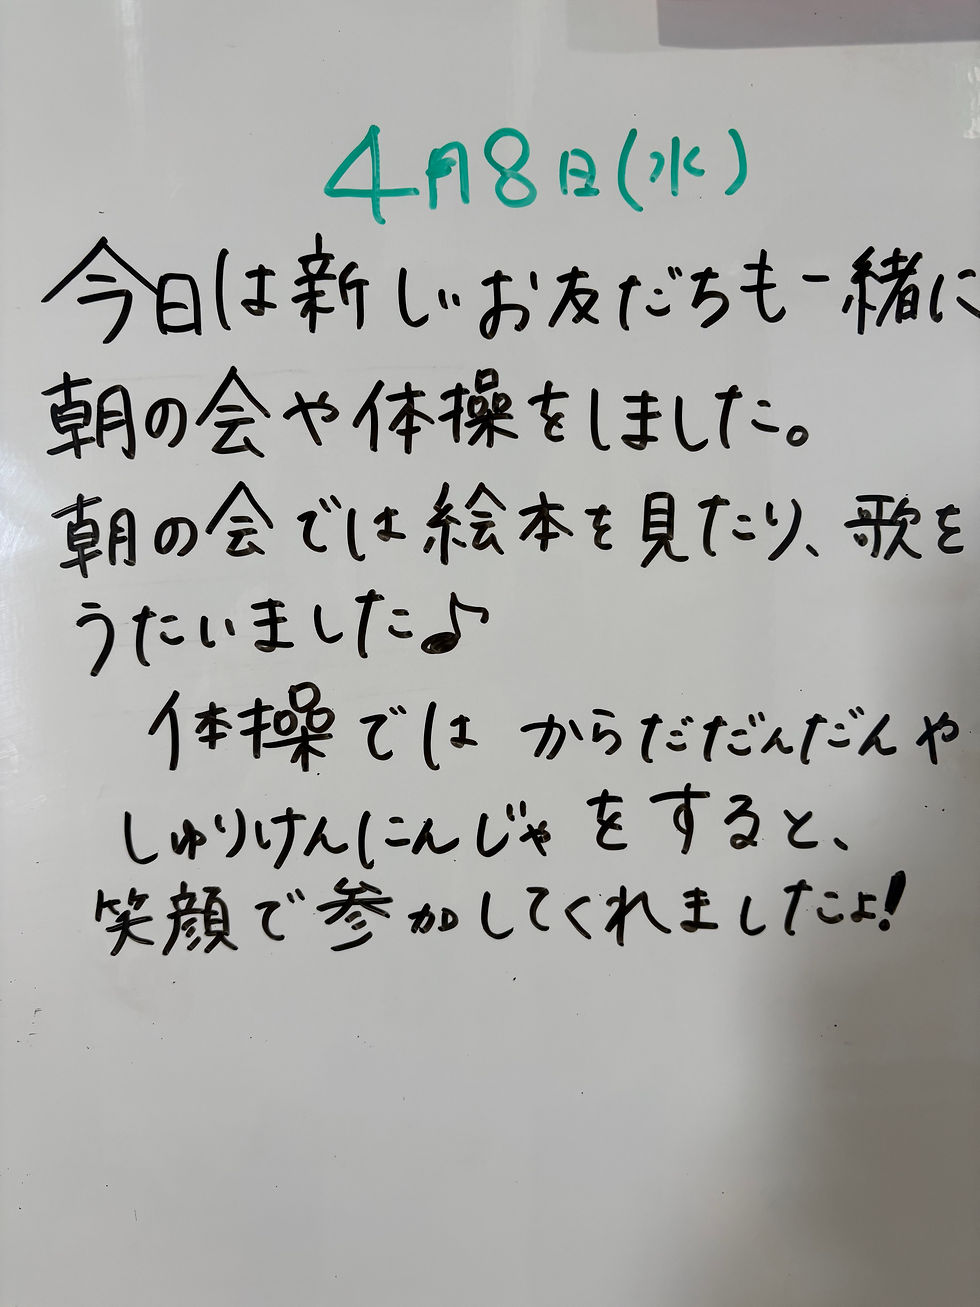 4月8日(水)
今日は新しいお友だちも一緒に
朝の会や体操をしました。
朝の会では絵本を見たり、歌を
うたいました♪
体操では からだだんだんや
しゅりけんにんじゃをすると、
笑顔で参加してくれましたよ!